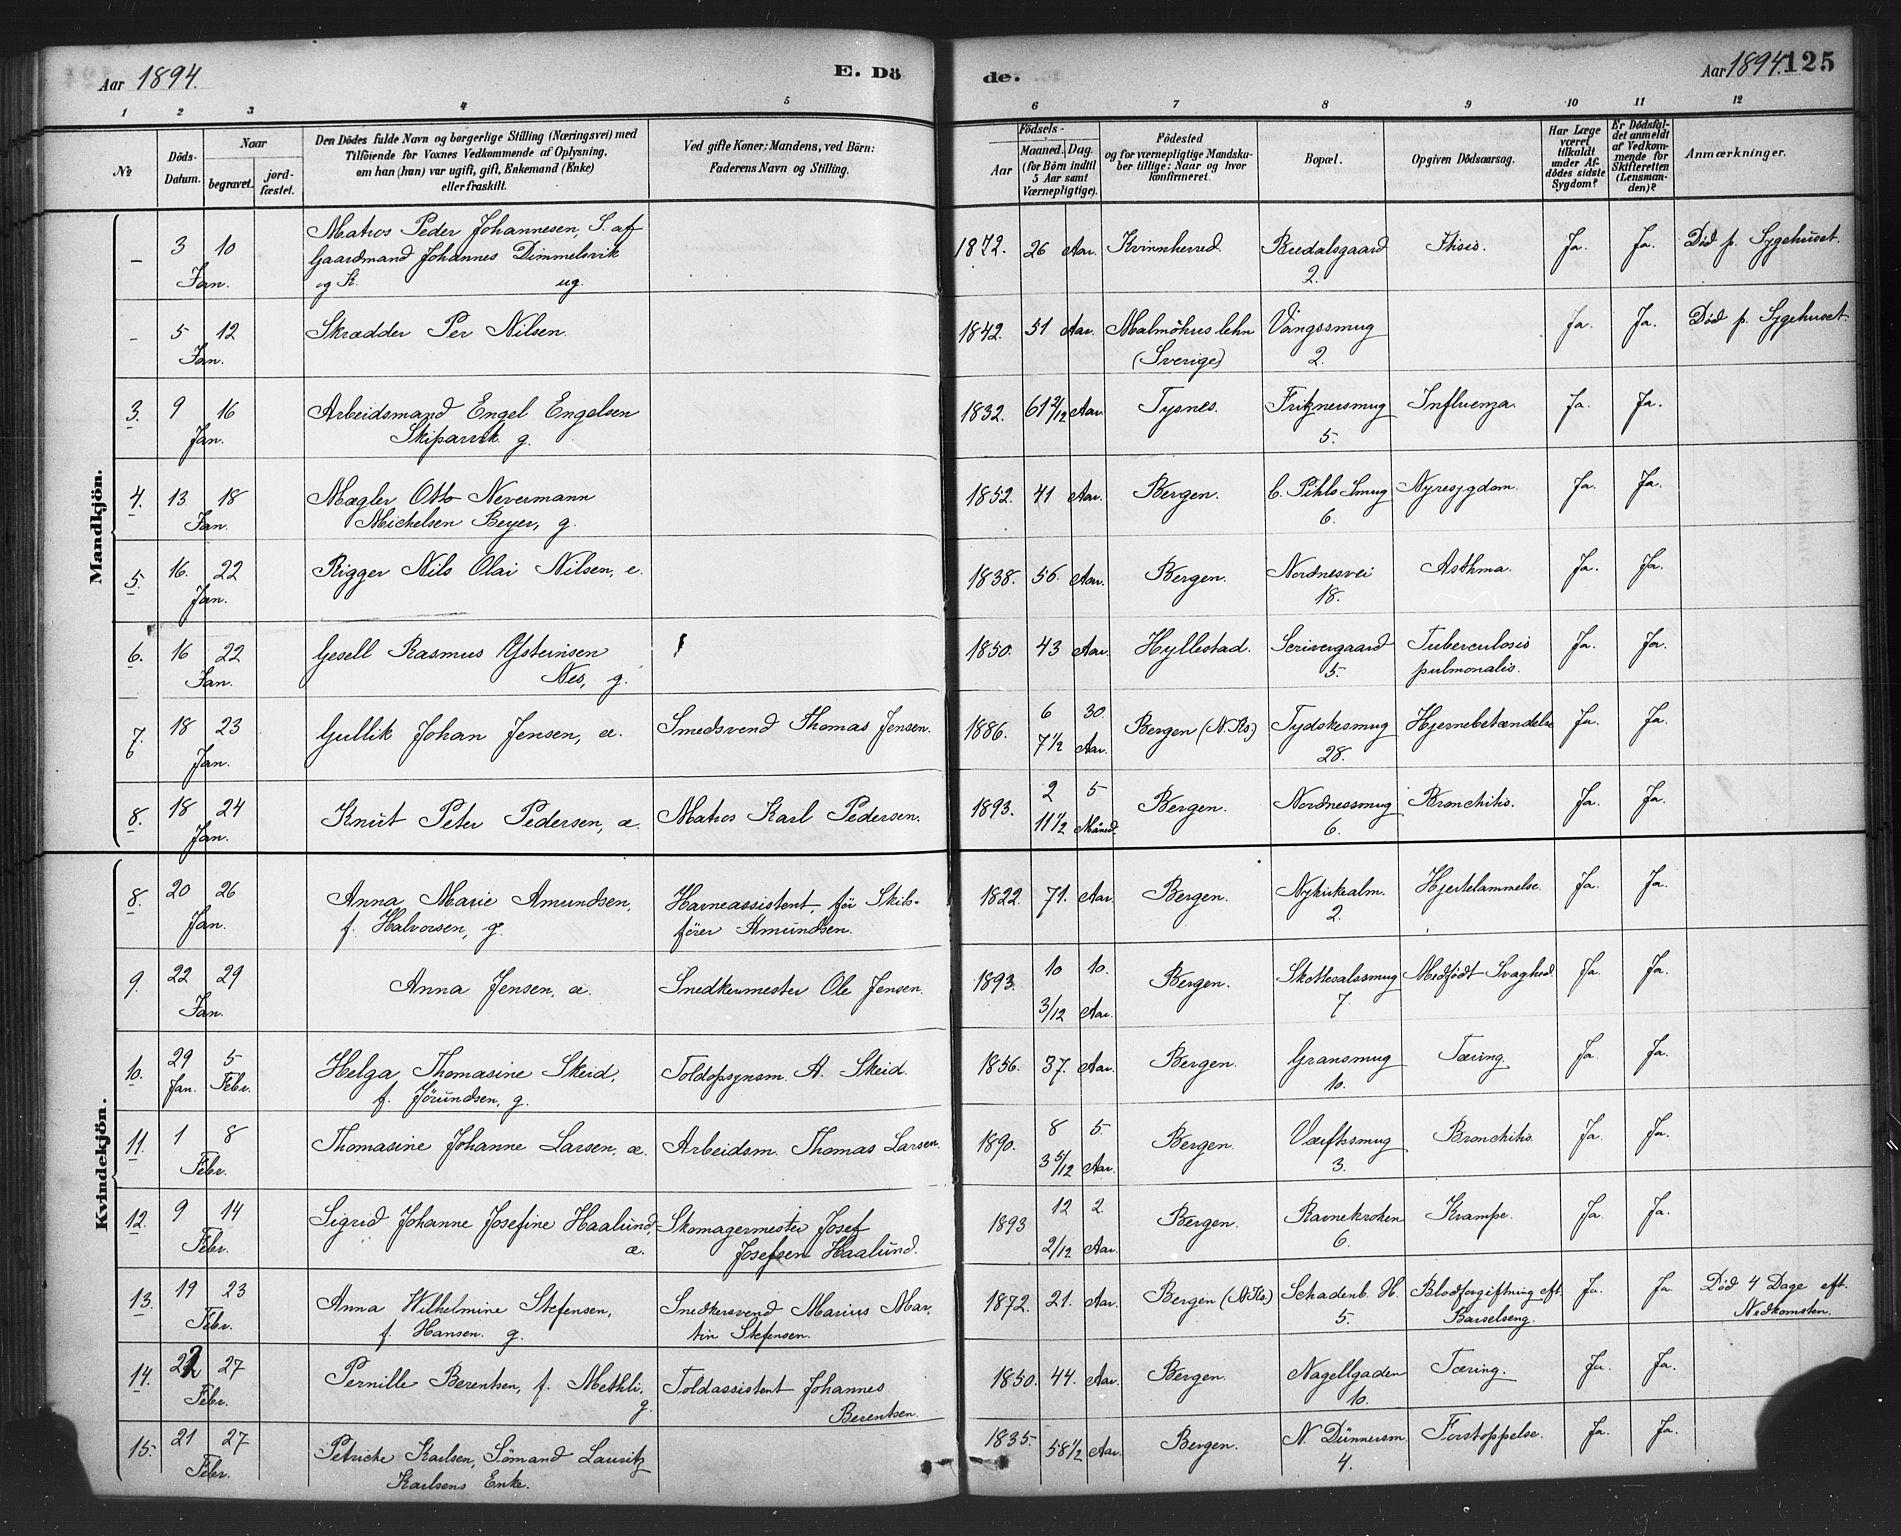 Aar 1894.
E. Dö
de.
Aar 1894. 125
1 2 3 4 5 6 7 8 9 10 11 12
No
Döds-Datum.
Naar
begravet.
jord-fæstet.
Den Dödes fulde Navn og borgerlige Stilling (Næringsvei) med
Tilföiende for Voxnes Vedkommende af Oplysning,
om han (hun) var ugift, gift, Enkemand (Enke)
eller fraskilt.
Ved gifte Koner: Mandens, ved Börn:
Faderens Navn og Stilling.
Födsels-
Aar
Maaned. Dag.
(for Börn indtil
5 Aar samt
Værnepligtige).
Födested
og for værnepligtige Mandska-
ber tillige: Naar og hvor
konfirmeret.
Bopæl.
Opgiven Dödsaarsag.
Har Læge
været
tilkaldt
under Af-
dødes sidste
Sygdom?
Er Dödsfal-
det anmeldt
af Vedkom-
mende for
Skifteretten
(Lensman-
den)?
Anmærkninger.
Mandkjön.
– 3 10 Matros Peder Johannesen, S. af 1872. 26 Aar. Kvinnherred. Bredalsgaard Ftisis. Ja. Ja. Död p. Sygehuset.
Jan. Gaardmand Johannes Dimmelsvik 2.
og K. ug.
– 5 12 Skrædder Per Nilsen. 1842. 51 Aar. Malmöhus lehn Vangssmug Ja. Ja. Död p. Sygehuset.
Jan. (Sverige) 2.
3. 9 16 Arbeidsmand Engel Engelsen 1832. 61 2/12 Aar. Tysnes. Friknersmug Influenza. Ja. Ja.
Jan. Skiparvik g. 5.
4. 13 18 Mægler Otto Nevermann 1852. 41 Aar. Bergen. C. Pihls Smug Nyresygdom. Ja. Ja.
Jan. Michelsen Beyer, g. 6.
5. 16. 22 Rigger Nils Olai Nilsen, e. 1838. 56. Aar. Bergen. Nordnesvei Asthma. Ja. Ja.
Jan. 18.
6. 16 22 Gesell Rasmus Østeinsen 1850. 43 Aar. Hyllestad. Scrivergaard Tuberculosis Ja. Ja.
Jan. Nes, g. 5. pulmonalis.
7. 18 23 Gullik Johan Jensen, æ. Smedsvend Thomas Jensen. 1886. 6 30. Bergen (N. Ks.) Tydskesmug Hjernebetændelse Ja. Ja.
Jan. 7 1/2 Aar. 28.
8. 18 24 Knut Peter Pedersen, æ. Matros Karl Pedersen. 1893. 2 5 Bergen. Nordnessmug Bronchitis. Ja. Ja.
Jan. 11 1/2 Maaned. 6.
Kvindekjön.
8. 20 26 Anna Marie Amundsen, Havneassistent, för Skibs- 1822. 71. Aar. Bergen. Nykirkealm. Hjertelammelse. Ja. Ja.
Jan. f. Halvorsen, g. förer Amundsen. 2.
9. 22 29 Anna Jensen, æ. Snedkermester Ole Jensen. 1893. 10 10. Bergen. Skottesalssmug Medfödt Svaghed Ja. Ja.
Jan. 3/12 Aar. 7.
10. 29 5 Helga Thomasine Skeid, Toldopsynsm. A. Skeid. 1856. 37. Aar. Bergen. Gransmug Tæring Ja. Ja.
Jan. Febr. f. Jörundsen, g. 10.
11. 1 8 Thomasine Johanne Larsen, æ. Arbeidsm. Thomas Larsen. 1890. 8 5. Bergen. Værftssmug Bronchitis. Ja. Ja.
Febr. 3 5/12 Aar. 3.
12. 9 14 Sigrid Johanne Josefine Haalund, Skomagermester Josef 1893 12 2. Bergen. Ravnekroken Krampe. Ja. Ja.
Febr. æ. Josefsen Haalund. 2/12 Aar. 6.
13. 19 23 Anna Wilhelmine Stefensen, Snedkersvend Marius Mar- 1872. 21. Aar. Bergen (N. Ks) Schadenb. H. Blodforgiftning eft. Ja. Ja. Död 4 Dage eft.
Febr. f. Hansen. g. tin Stefensen. 5. Barselseng. Nedkomsten.
14. 22 27 Pernille Berentsen, f. Methli, Toldassistent Johannes 1850. 44. Aar. Bergen. Nagellgaden Tæring. Ja. Ja.
Febr. g. Berentsen. 10.
15. 21 27 Petriche Karlsen, Sömand Lauritz 1835. 58 1/2 Aar. Bergen. N. Dünnersm. Forstoppelse. Ja. Ja.
Febr. Karlsens Enke. 4.